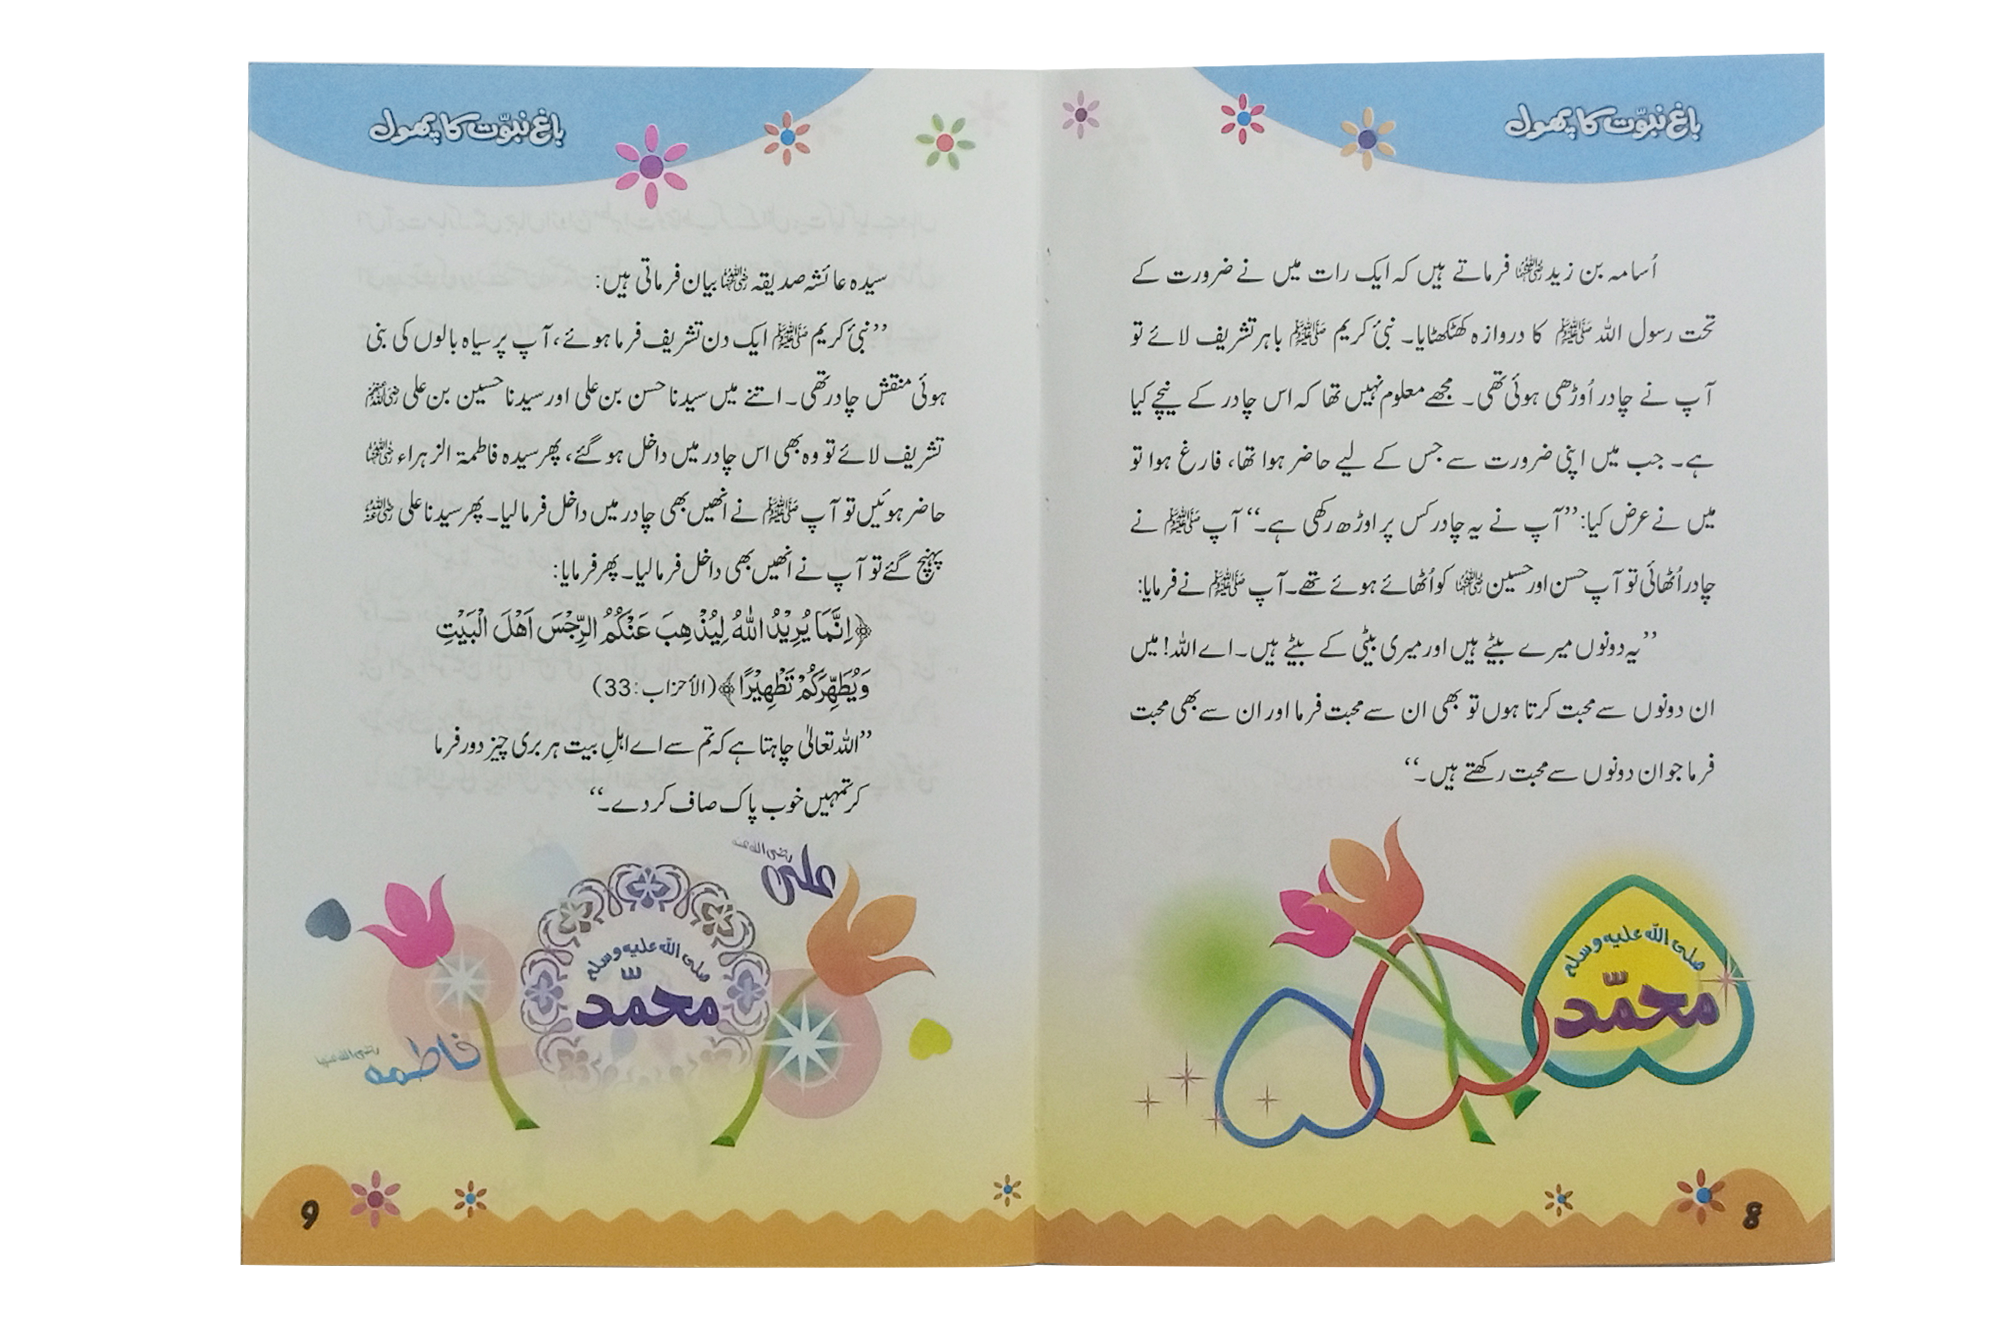 باغِ نبوّت کا پھول
اُسامہ بن زید رضی اللہ عنہما فرماتے ہیں کہ ایک رات میں نے ضرورت کے
تحت رسول اللہ ﷺ کا دروازہ کھٹکھٹایا۔ نبیٔ کریم ﷺ باہر تشریف لائے تو
آپ نے چادر اُوڑھی ہوئی تھی۔ مجھے معلوم نہیں تھا کہ اس چادر کے نیچے کیا
ہے۔ جب میں اپنی ضرورت سے جس کے لیے حاضر ہوا تھا، فارغ ہوا تو
میں نے عرض کیا: ’’آپ نے یہ چادر کس پر اوڑھ رکھی ہے۔‘‘ آپ ﷺ نے
چادر اُٹھائی تو آپ حسن اور حسین رضی اللہ عنہما کو اُٹھائے ہوئے تھے۔ آپ ﷺ نے فرمایا:
’’یہ دونوں میرے بیٹے ہیں اور میری بیٹی کے بیٹے ہیں۔ اے اللہ! میں
ان دونوں سے محبت کرتا ہوں تو بھی ان سے محبت فرما اور ان سے بھی محبت
فرما جو ان دونوں سے محبت رکھتے ہیں۔‘‘
صلی اللہ علیہ وسلم
محمّد
8
باغِ نبوّت کا پھول
سیدہ عائشہ صدیقہ رضی اللہ عنہا بیان فرماتی ہیں:
’’نبیٔ کریم ﷺ ایک دن تشریف فرما ہوئے، آپ پر سیاہ بالوں کی بنی
ہوئی منقش چادر تھی۔ اتنے میں سیدنا حسن بن علی اور سیدنا حسین بن علی رضی اللہ عنہم
تشریف لائے تو وہ بھی اس چادر میں داخل ہو گئے، پھر سیدہ فاطمۃ الزہراء رضی اللہ عنہا
حاضر ہوئیں تو آپ ﷺ نے انھیں بھی چادر میں داخل فرما لیا۔ پھر سیدنا علی رضی اللہ عنہ
پہنچ گئے تو آپ نے انھیں بھی داخل فرما لیا۔ پھر فرمایا:
﴿اِنَّمَا یُرِیْدُ اللّٰهُ لِیُذْهِبَ عَنْكُمُ الرِّجْسَ اَهْلَ الْبَیْتِ
وَیُطَهِّرَكُمْ تَطْهِیْرًا﴾ (الأحزاب: 33)
’’اللہ تعالیٰ چاہتا ہے کہ تم سے اے اہلِ بیت ہر بری چیز دور فرما
کر تمہیں خوب پاک صاف کر دے۔‘‘
علی رضی اللہ عنہ
صلی اللہ علیہ وسلم
محمّد
فاطمہ رضی اللہ عنہا
9